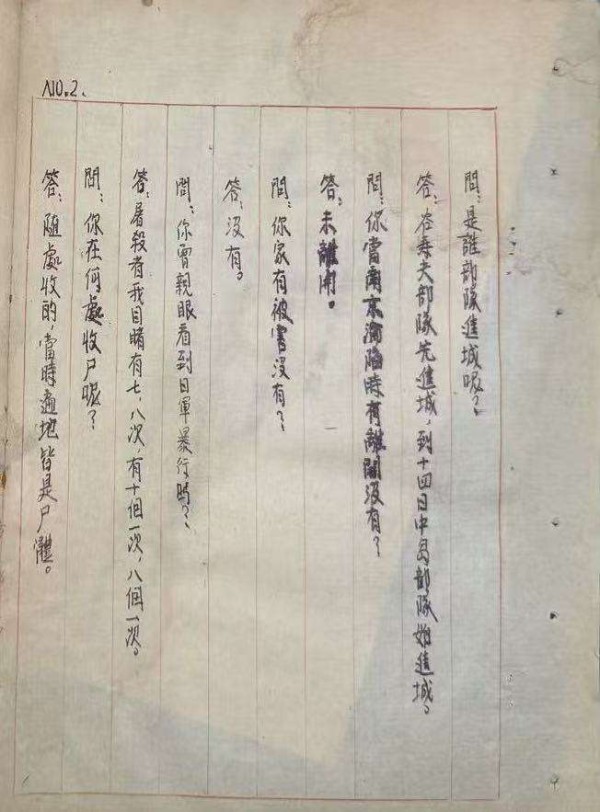 NO.2.
問：是誰部隊進城呢？
答：谷寿夫部隊先進城，到十四日中島部隊始進城。
問：你當南京淪陷時有離開没有？
答：未離開。
問：你家有被害没有？
答：没有。
問：你曾親眼看到日軍暴行嗎？
答：屠殺者我目睹有七、八次，有十個一次，八個一次。
問：你在何處收尸呢？
答：随處收的，當時遍地皆是尸體。